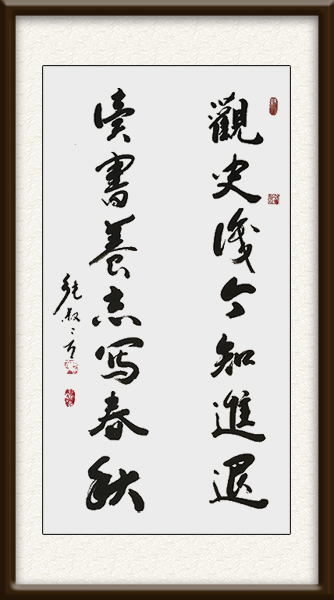 觀史識今知進退
讀書養志寫春秋